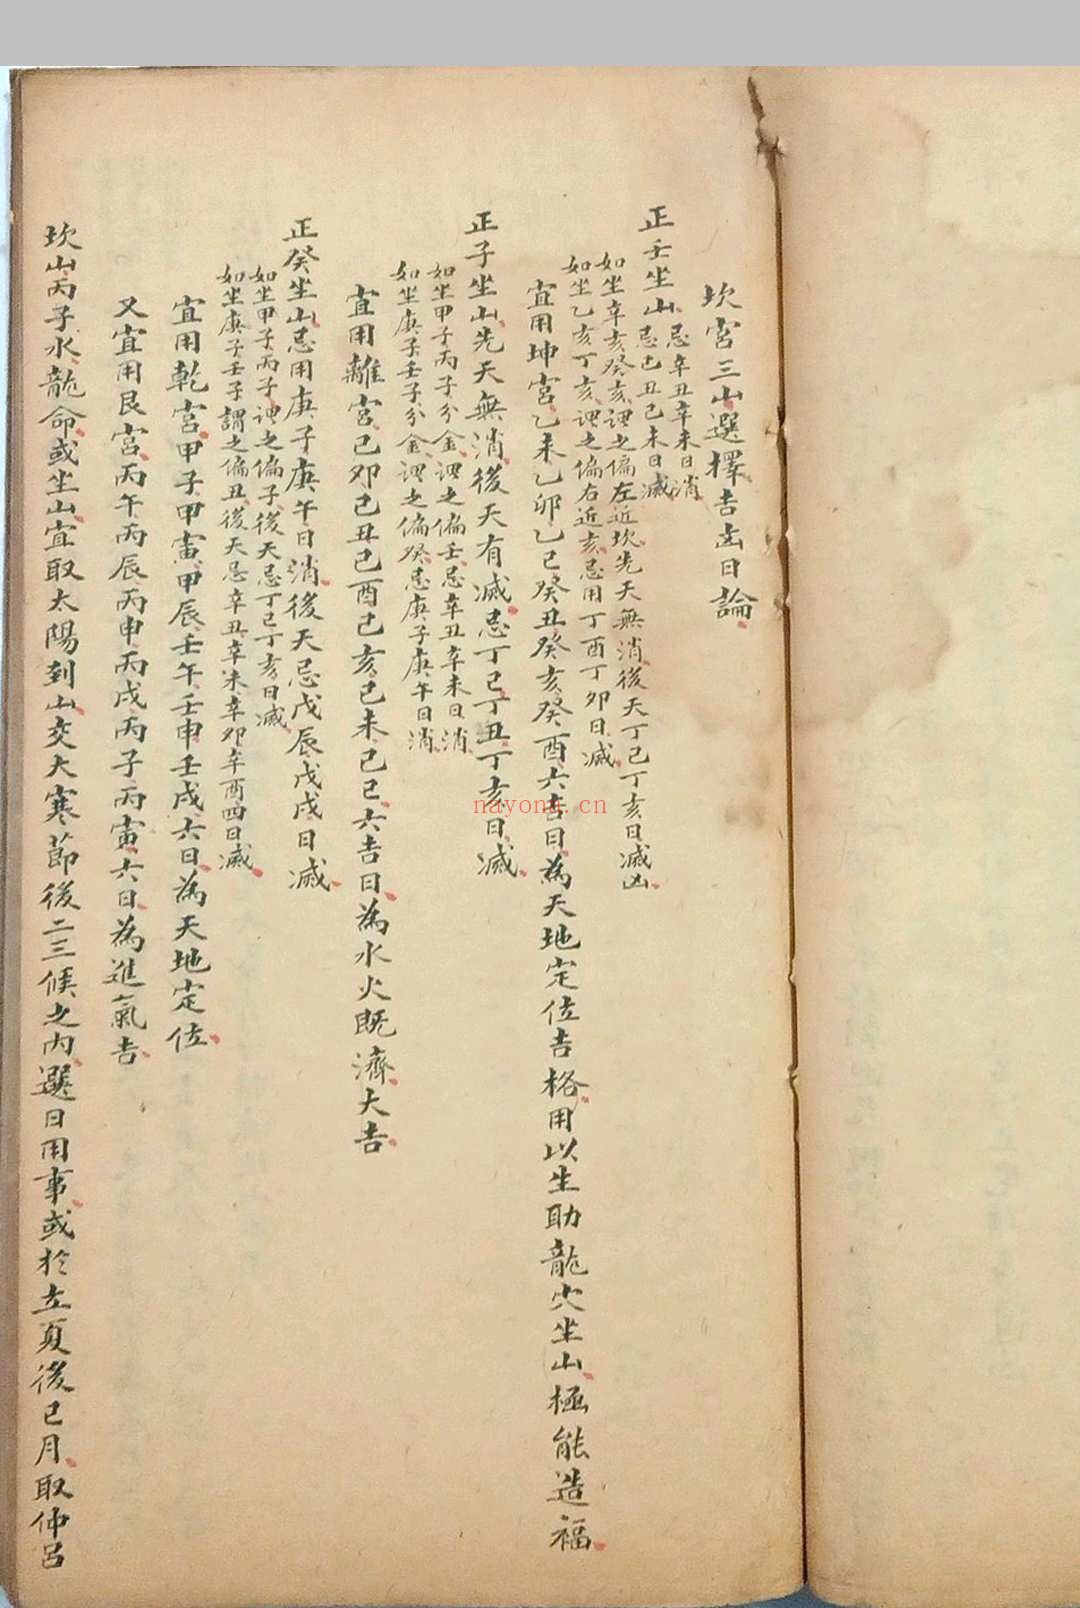 坎宮三山選擇吉凶日論
正壬坐山忌辛丑辛未日消
忌己丑己未日滅
如坐辛亥癸亥謂之偏左近坎先天無消後天丁己丁亥日滅凶
如坐乙亥丁亥謂之偏右近亥忌用丁酉丁卯日滅
宜用坤宮乙未乙卯乙巳癸丑癸亥癸酉六吉日為天地定位吉格用以生助龍穴坐山極能造福
正子坐山先天無消後天有滅忌丁己丁丑丁亥日滅
如坐甲子丙子分金謂之偏壬忌辛丑辛未日消
如坐庚子壬子分金謂之偏癸忌庚子庚午日消
宜用離宮己卯己丑己酉己亥己未己巳六吉日為水火既濟大吉
正癸坐山忌用庚子庚午日消後天忌戊辰戊戌日滅
如坐甲子丙子謂之偏子後天忌丁己丁亥日滅
如坐庚子壬子謂之偏丑後天忌辛丑辛未辛卯辛酉四日滅
宜用乾宮甲子甲寅甲辰壬午壬申壬戌六日為天地定位
又宜用艮宮丙午丙辰丙申丙戌丙子丙寅六日為進氣吉
坎山丙子水龍命或坐山宜取太陽到山交大寒節後二三候之內選日用事或於立夏後巳月取仲呂
nayong.cn